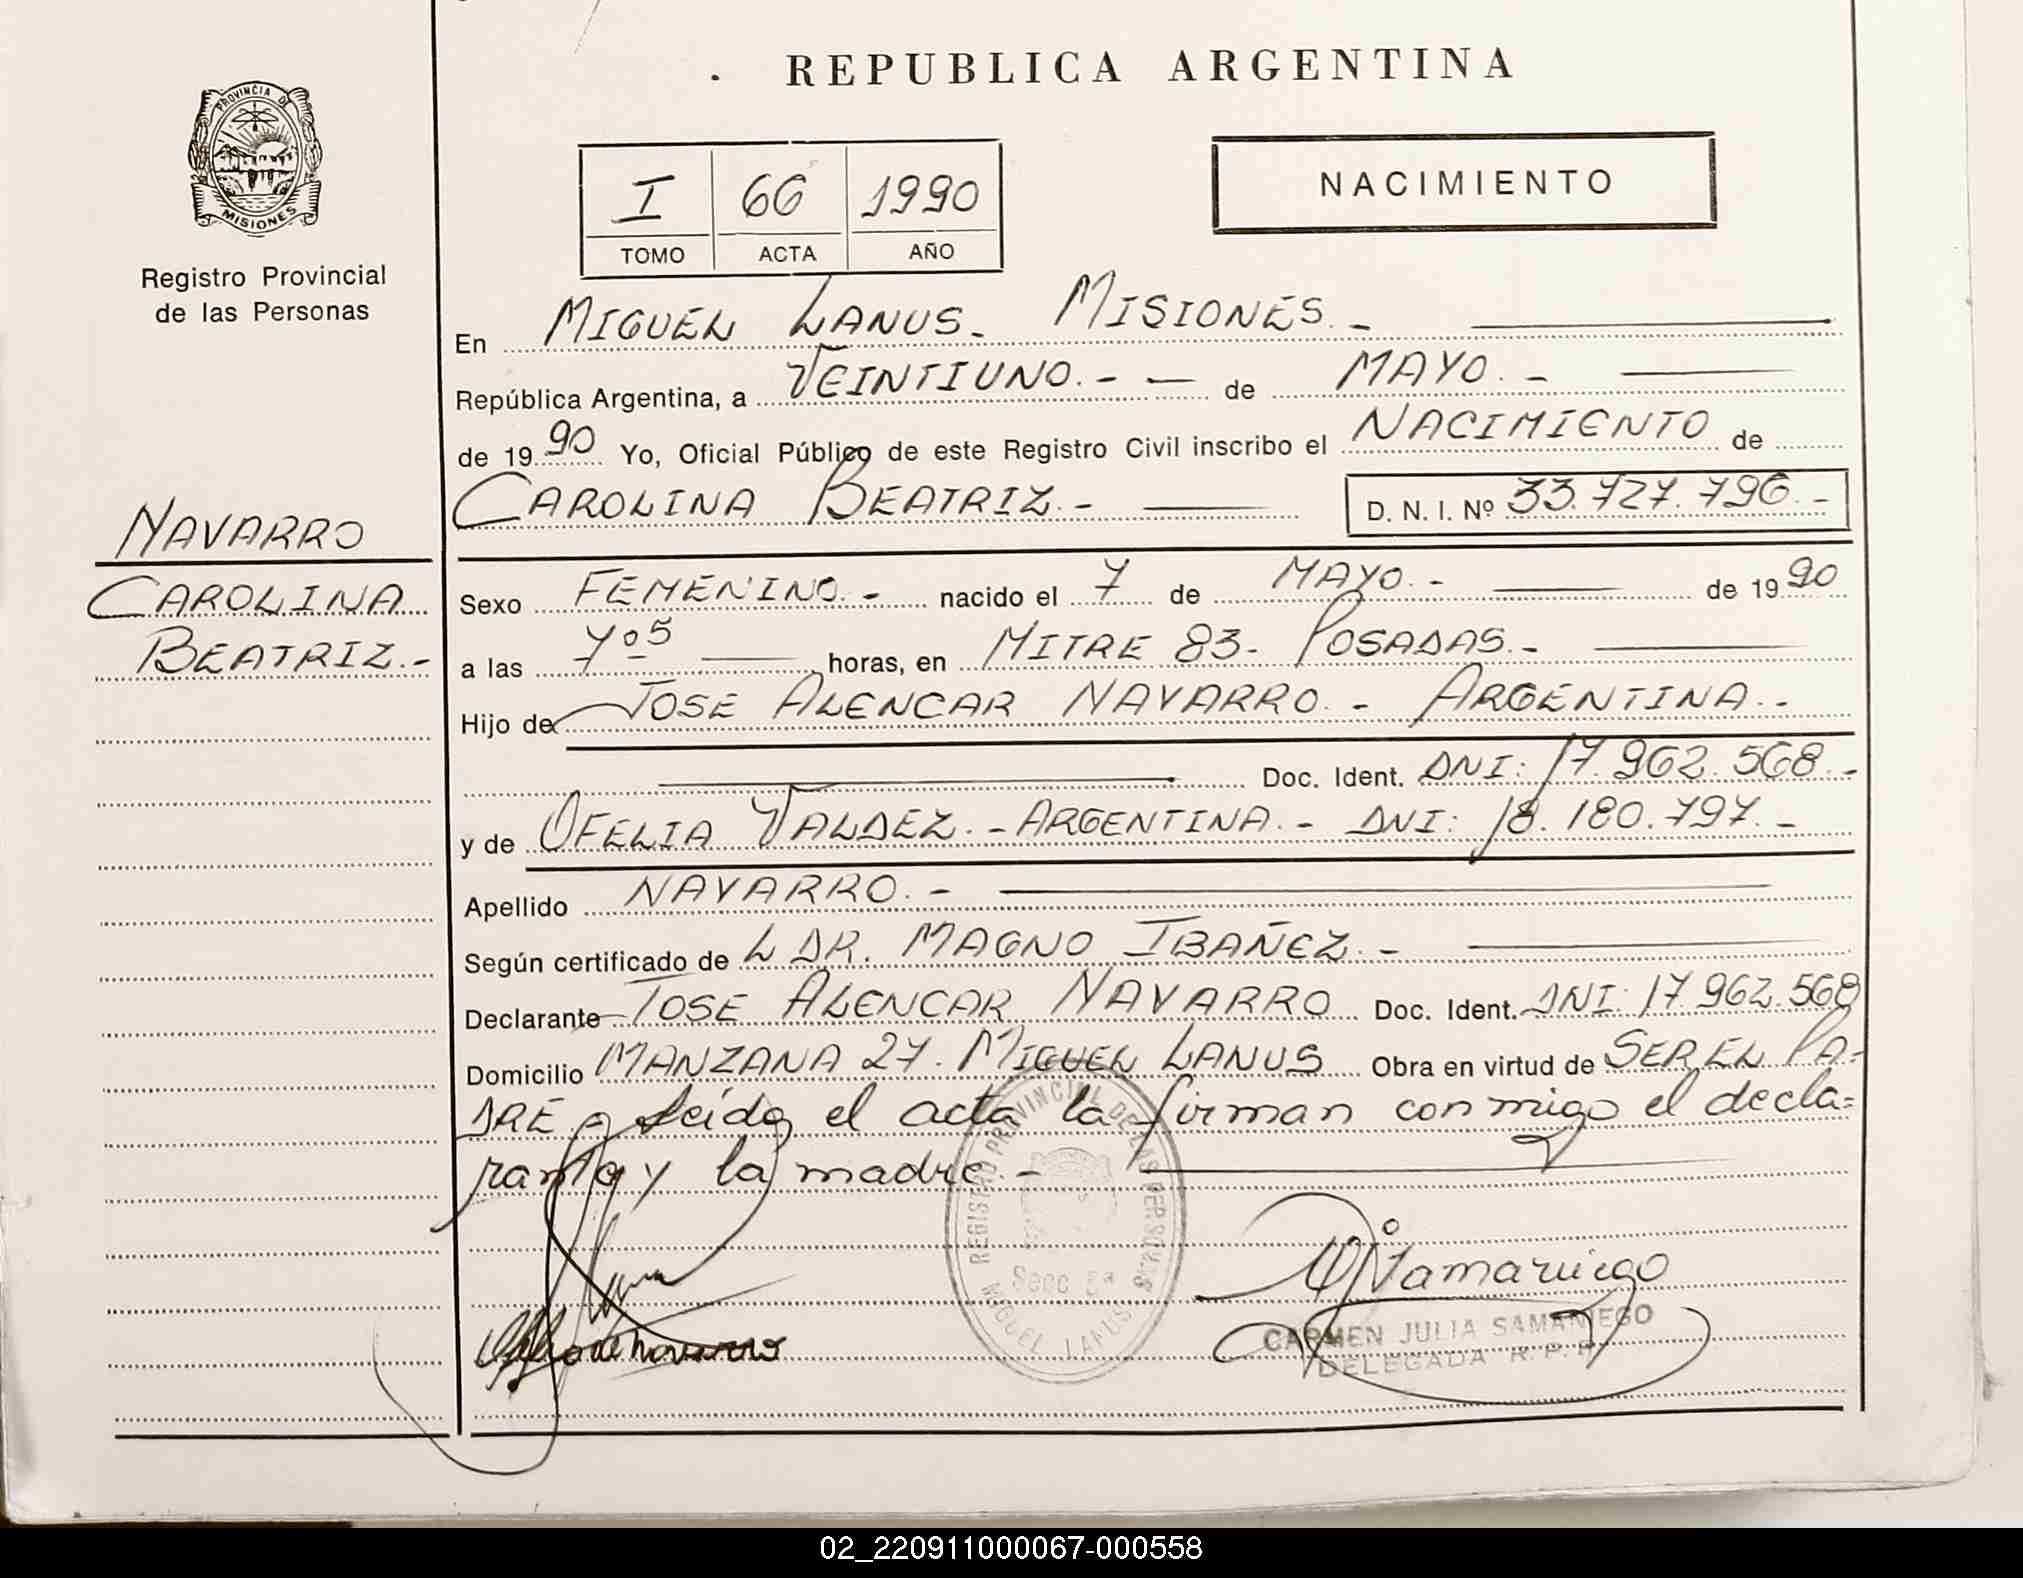 REPUBLICA ARGENTINA
PROVINCIA DE
MISIONES
Registro Provincial
de las Personas
I 66 1990
TOMO ACTA AÑO
NACIMIENTO
En MIGUEL LANUS.- MISIONES.-
República Argentina, a VEINTIUNO.- - de MAYO.-
de 1990 Yo, Oficial Público de este Registro Civil inscribo el NACIMIENTO de
CAROLINA BEATRIZ.- D. N. I. Nº 33.727.796.-
NAVARRO
CAROLINA
BEATRIZ.-
Sexo FEMENINO.- nacido el 7 de MAYO.- de 1990
a las 7º5 horas, en MITRE 83- POSADAS.-
Hijo de JOSE ALENCAR NAVARRO.- ARGENTINA.-
Doc. Ident. DNI: 17.962.568.-
y de OFELIA VALDEZ.- ARGENTINA.- DNI: 18.180.797.-
Apellido NAVARRO.-
Según certificado de L DR. MAGNO IBAÑEZ.-
Declarante JOSE ALENCAR NAVARRO Doc. Ident. DNI: 17.962.568
Domicilio MANZANA 27. MIGUEL LANUS Obra en virtud de SER EL PA=
DRE leída el acta la firman conmigo el decla=
rante y la madre.-
REGISTRO PROVINCIAL DE LAS PERSONAS
Secc 5ª
MIGUEL LANUS
Samaniego
CARMEN JULIA SAMANIEGO
DELEGADA R. P. P.
de Navarro
02_220911000067-000558